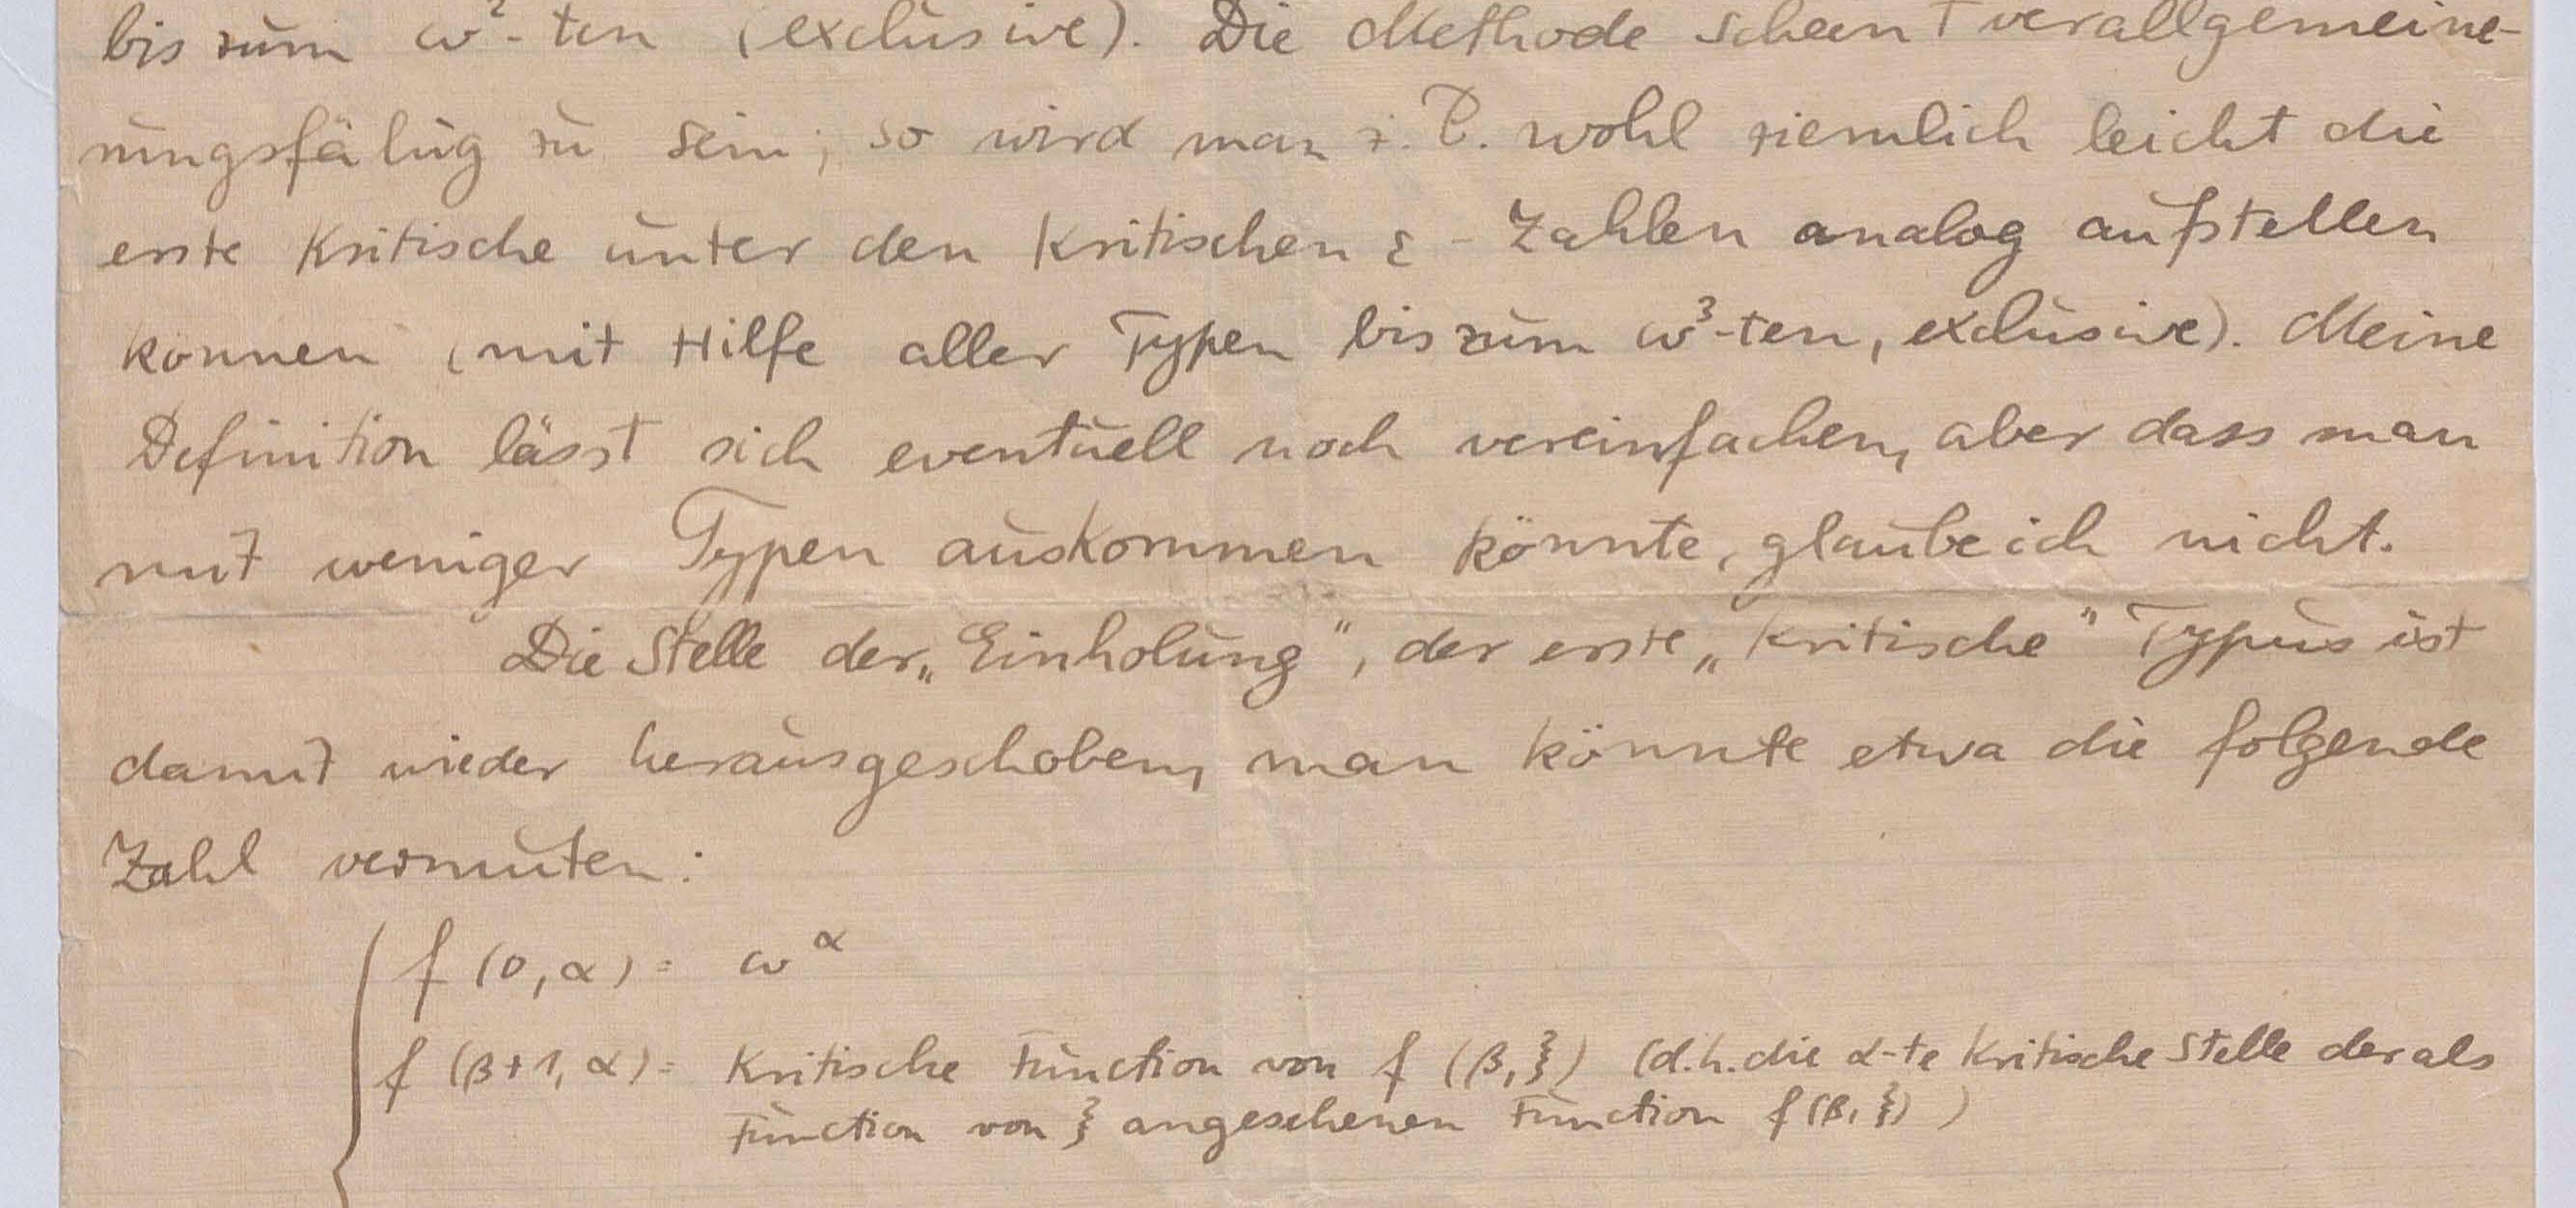 bis zum ω²-ten (exclusive). Die Methode scheint verallgemeine-
rungsfähig zu sein; so wird man z. B. wohl ziemlich leicht die
erste kritische unter den kritischen ε-Zahlen analog aufstellen
können (mit Hilfe aller Typen bis zum ω³-ten, exclusive). Meine
Definition lässt sich eventuell noch vereinfachen, aber dass man
mit weniger Typen auskommen könnte, glaube ich nicht.
Die Stelle der „Einholung“, der erste „kritische“ Typus ist
damit wieder herausgeschoben, man könnte etwa die folgende
Zahl vermuten:
f(0, α) = ω^α
f(β+1, α) = kritische Function von f(β, ξ) (d.h. die α-te kritische Stelle der als
Function von ξ angesehenen Function f(β, ξ))